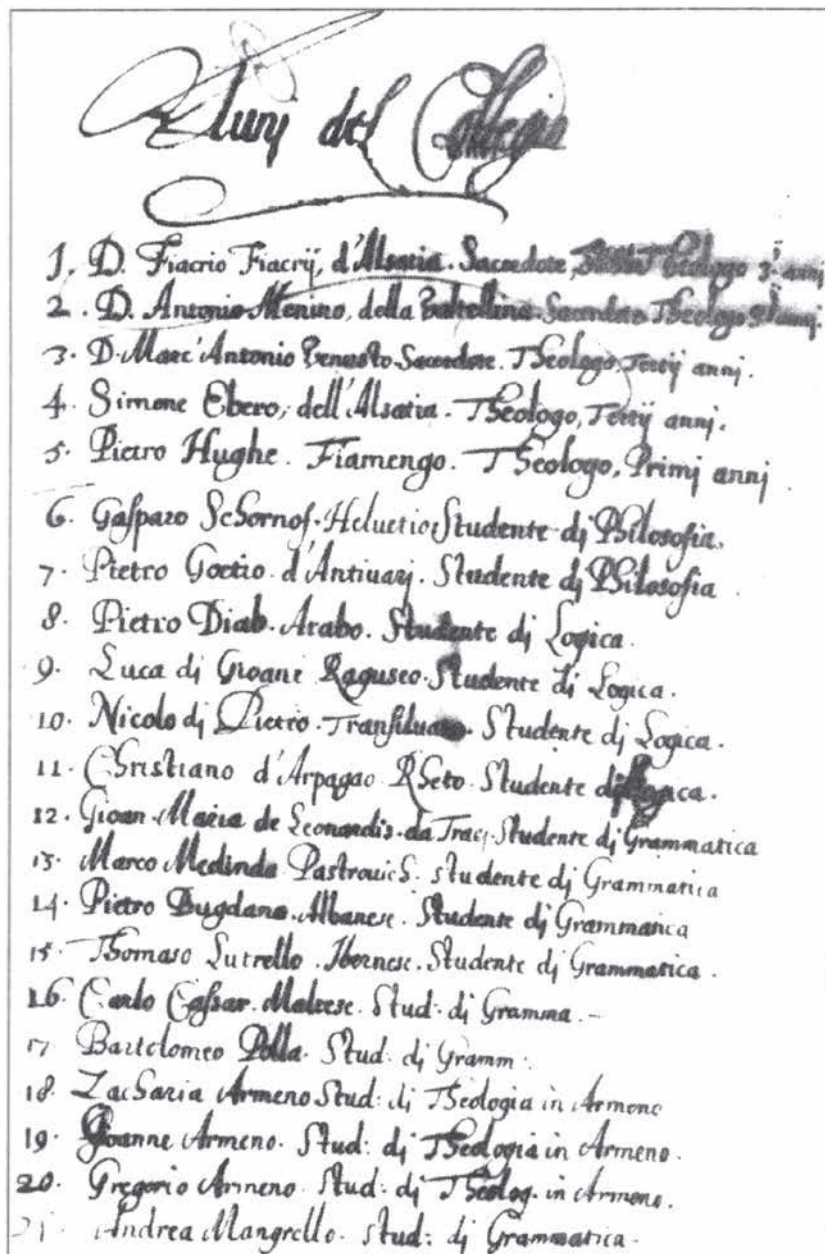 Alunj del Collegio
1. D. Fiacrio Fiacrij, d'Alsatia. Sacerdote, Theologo 3.ⁱ annj
2. D. Antonio Menino, della Valtellina. Sacerdote Theologo 3ⁱ annj.
3. D. Marc' Antonio Venusto Sacerdote. Theologo, Tertij annj.
4. Simone Ebero, dell'Alsatia. Theologo, Tertij annj.
5. Pietro Hughe. Fiamengo. Theologo, Primj annj
6. Gasparo Schornof. Helvetio Studente dj Philosofia.
7. Pietro Goetio d'Antiuarj. Studente dj Philosofia
8. Pietro Diab. Arabo. Studente dj Logica.
9. Luca dj Gioane Raguseo. Studente dj Logica.
10. Nicolo dj Pietro. Transiluano. Studente dj Logica.
11. Christiano d'Arpagao Rheto. Studente dj Logica.
12. Gioan Maria de Leonardis. da Traij. Studente dj Grammatica
13. Marco Medinda Pastrouich. studente dj Grammatica
14. Pietro Bugdano. Albanese. Studente dj Grammatica
15. Thomaso Lutrello. Ibernese. Studente dj Grammatica.
16. Carlo Cassar. Maltese. Stud: dj Gramma. -
17 Bartolomeo Polla. Stud. dj Gramm:
18. Zacharia Armeno Stud: dj Theologia in Armeno
19. Joanne Armeno. Stud: dj Theologia in Armeno.
20. Gregorio Armeno. Stud: dj Theolog. in Armeno.
21. Andrea Mangrello. stud: dj Grammatica.